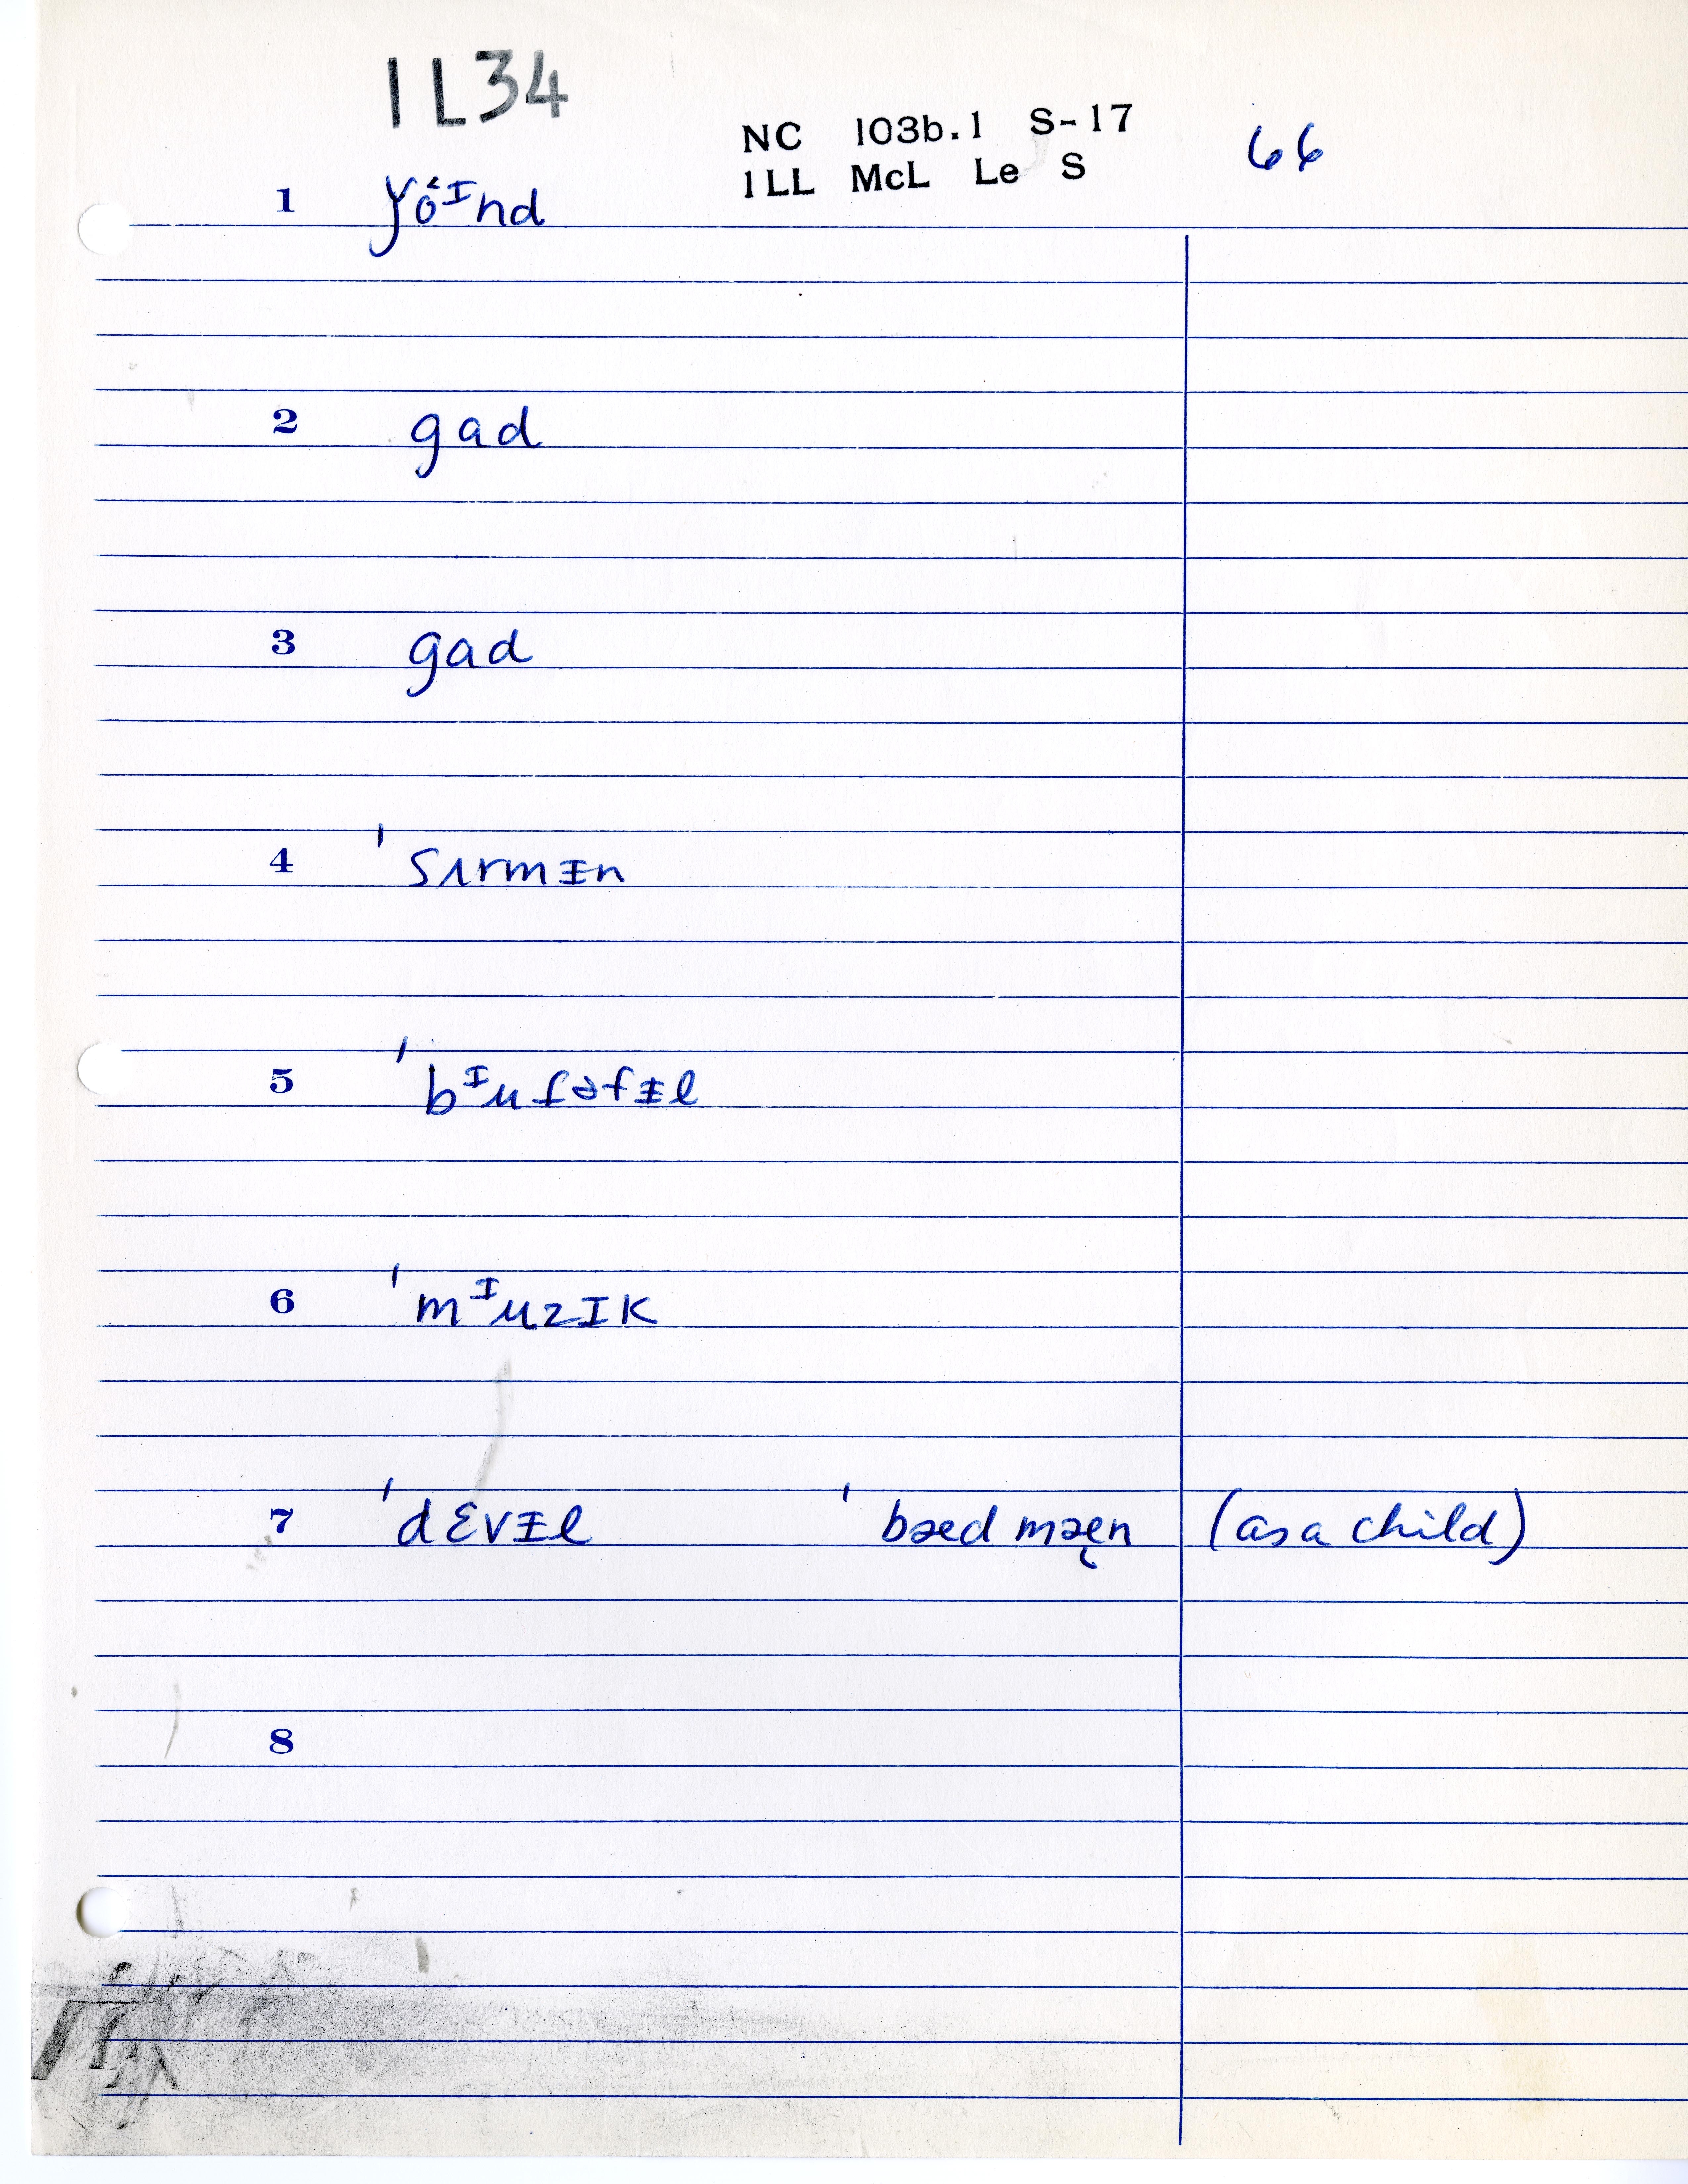 IL34
NC 103b.1 S-17
ILL McL Le S
66
1 ɣȯ́ᶦnd
2 gad
3 gad
4 ˈsɅrmᵻn
5 ˈbᶦufəfᵻl
6 ˈmᶦuzɪk
7 ˈdɛvᵻl ˈbæd mæ̨n (as a child)
8